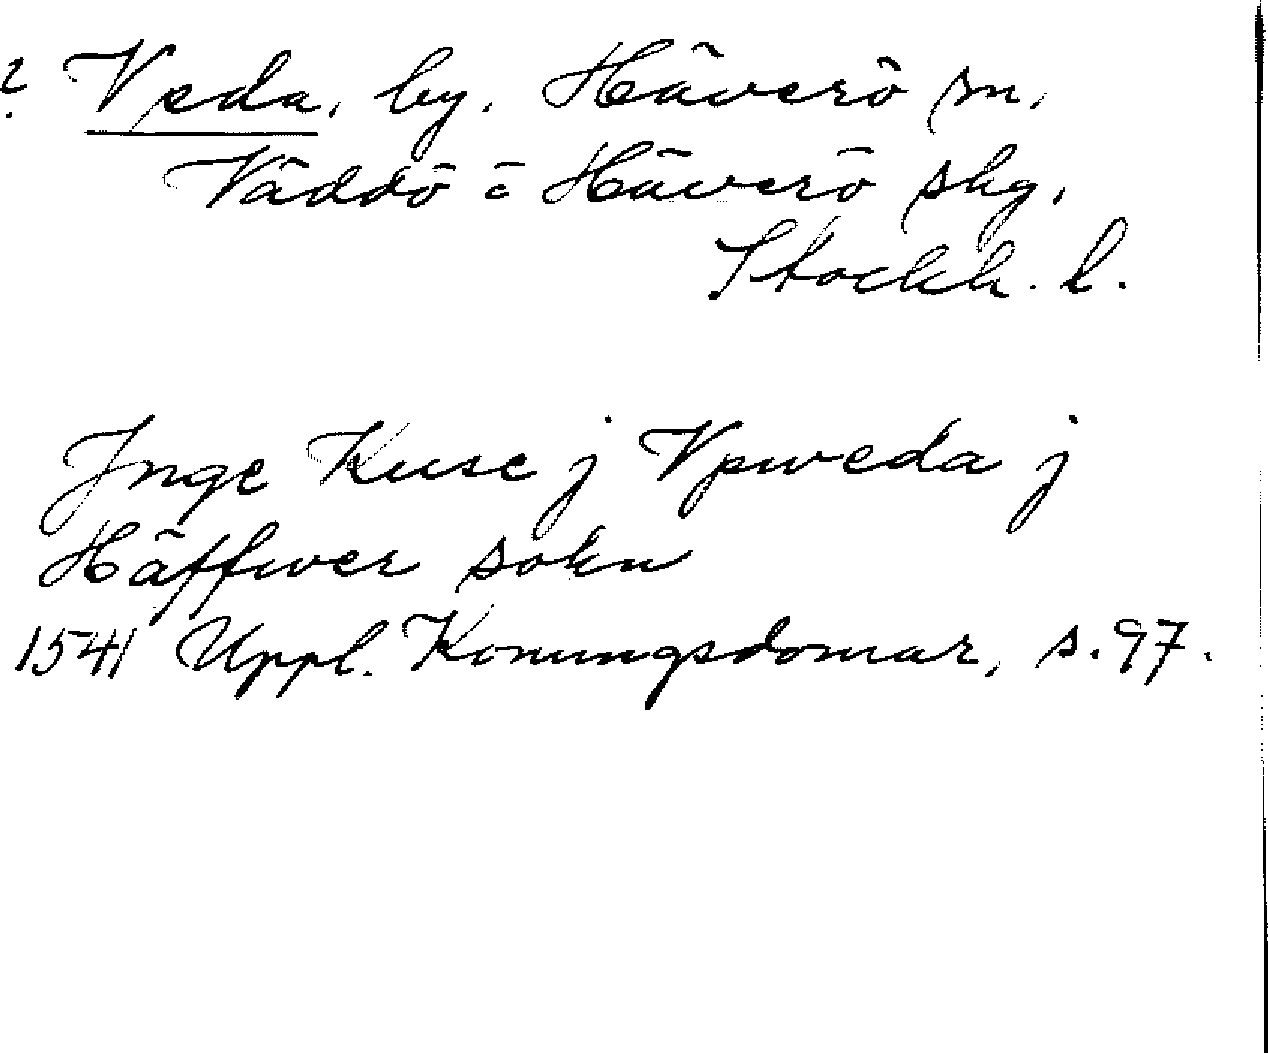 ? Veda. by. Häverö sn.
Väddö ō Häverö skg.
Stockh. l.
Jnge Kuse j Vpweda j
Häffwer sokn
1541 Uppl. Konungsdomar, s. 97.